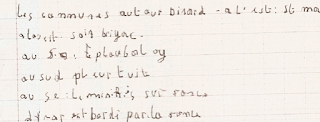 les communes autour dinard - a l'est: st ma
alouest: saint briac
au s.o.: ploubalay
au sud pleurtuit
au se: le minihic sur rance
dinar est bordé par la rance